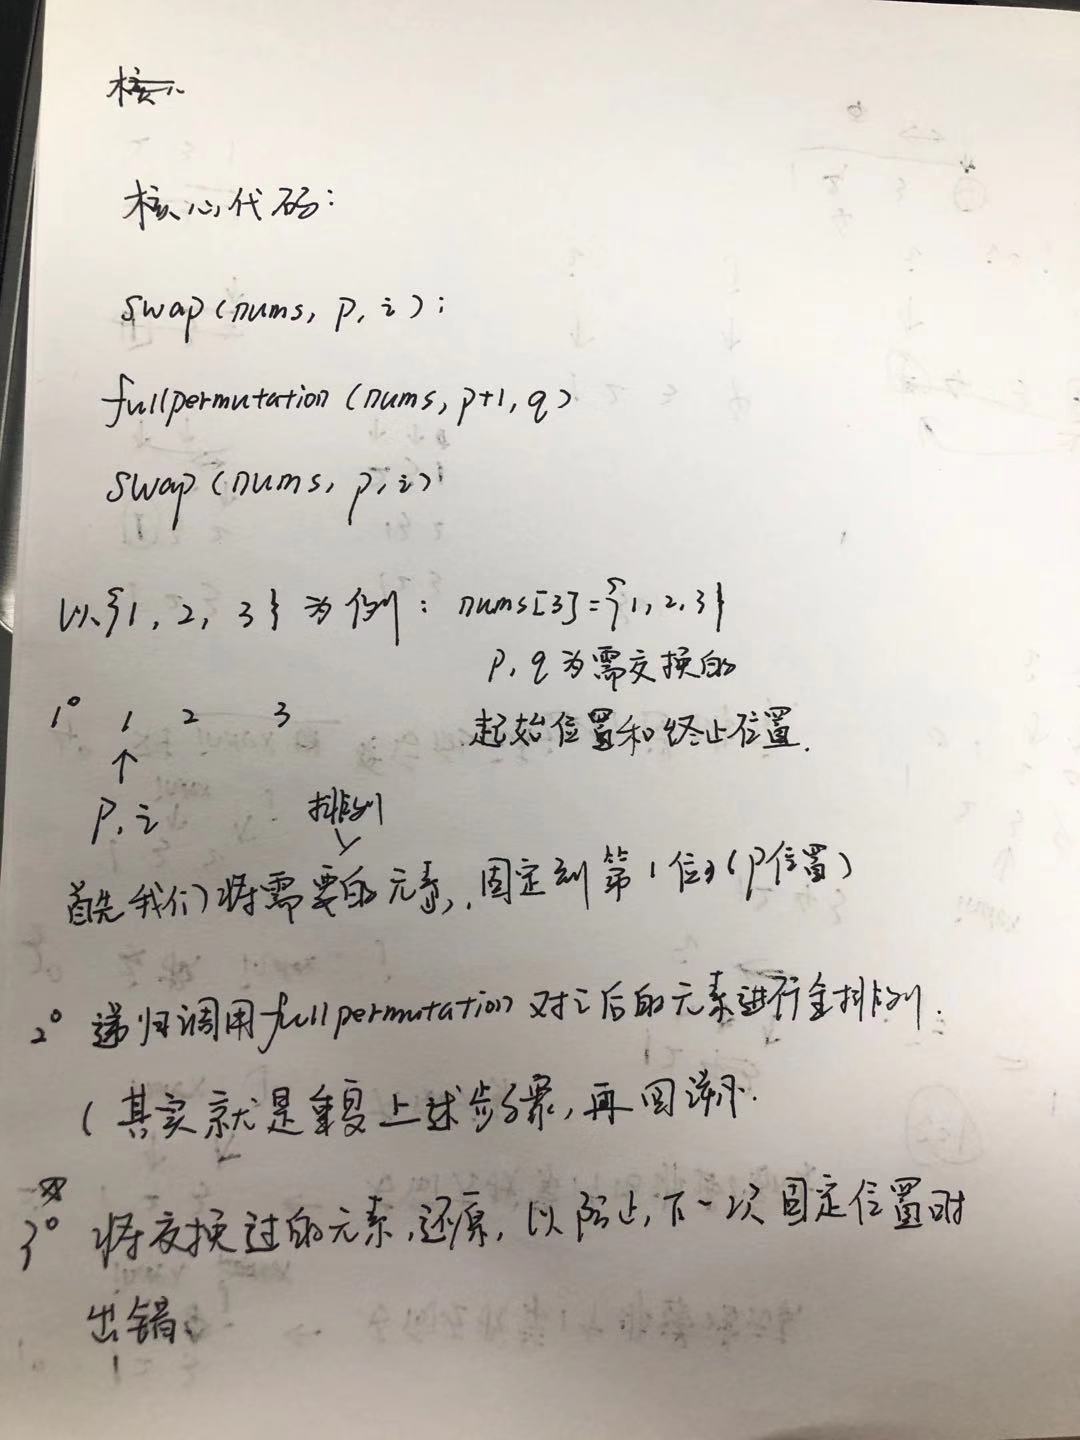 核心代码:
swap(nums, p, i);
fullpermutation(nums, p+1, q)
swap(nums, p, i)
以{1, 2, 3}为例: nums[3]={1,2,3}
p, q为需交换的
起始位置和终止位置.
1° 1 2 3
↑
p, i
排列
首先我们将需要的元素, 固定到第1位(p位置)
2° 递归调用fullpermutation对之后的元素进行全排列.
(其实就是重复上述步骤, 再回溯.
3° 将交换过的元素, 还原, 以防止, 下一次固定位置时
出错.